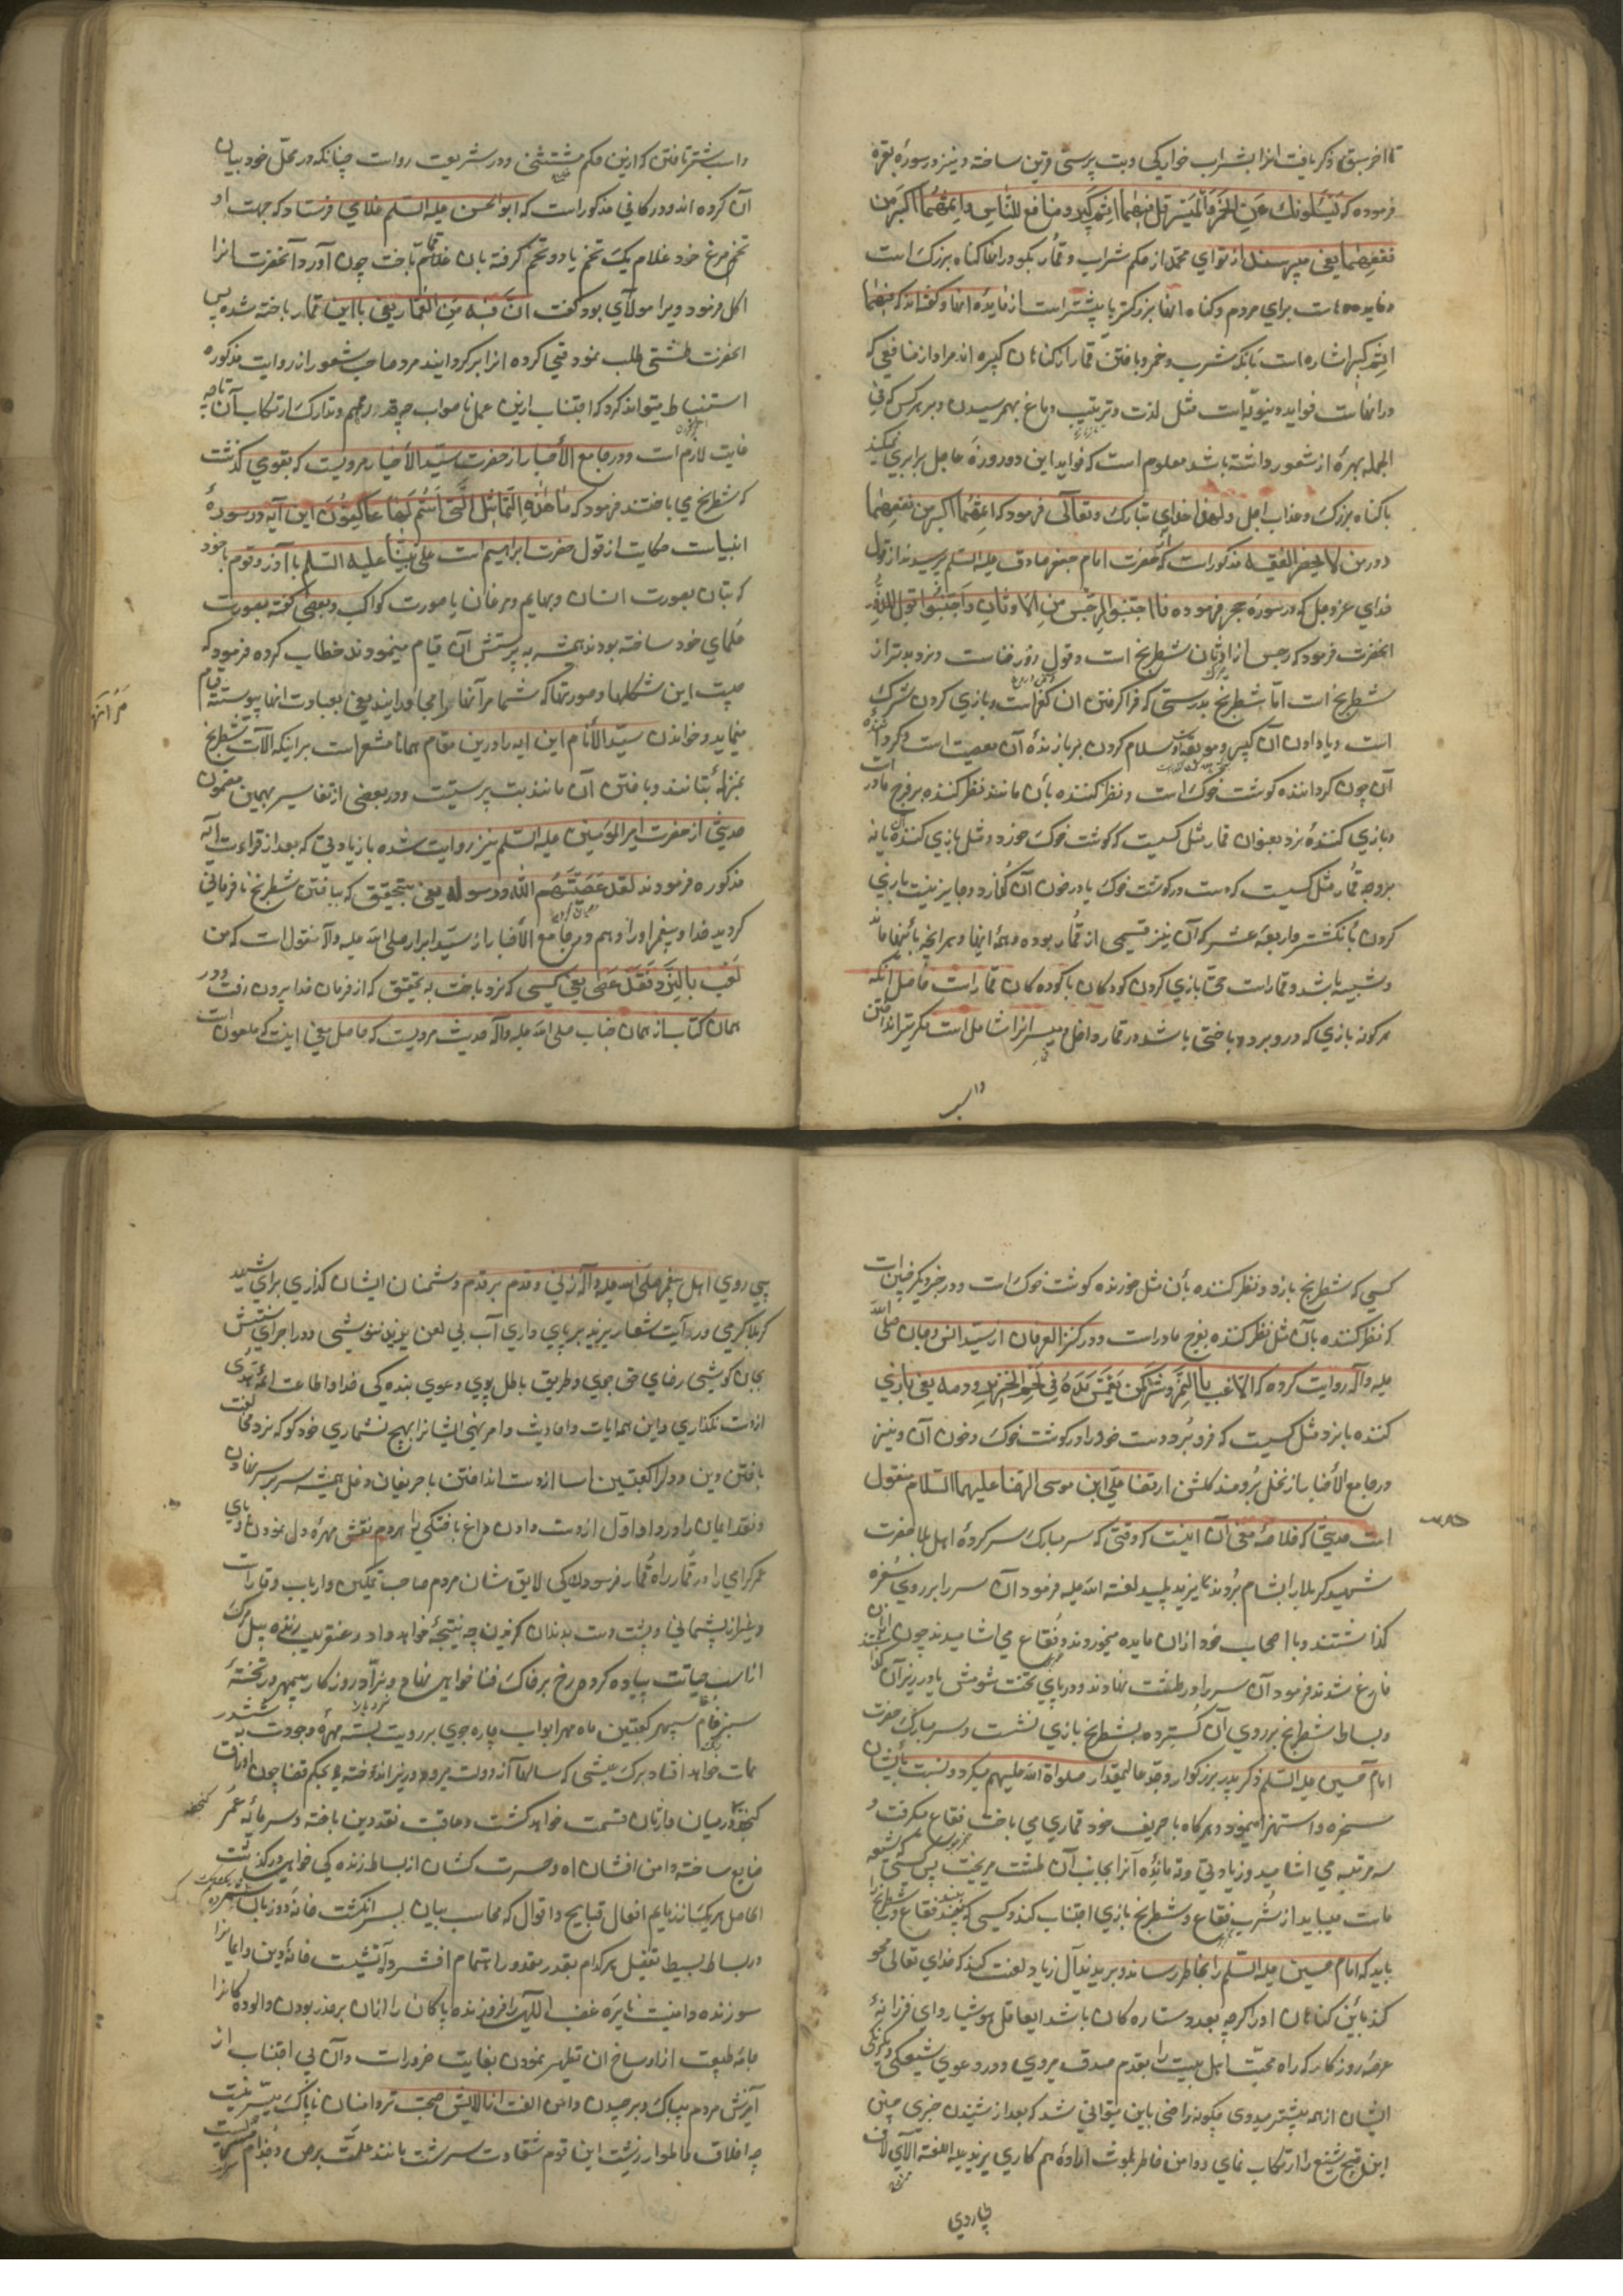 تا آخر سبق ذکر یافت انرا بشراب خوارکی و بت پرستی قرین ساخته و نیز در سورهٔ بقره
فرموده که یَسْئَلونک عَنِ الخَمْرِ وَالْمَیْسِرِ قل فیهما اِثم کبیر و منافع للنّاس و اثمهُما اکبر من
نفعهما یعنی میپرسند از تو ای محمّد از حکم شراب و قمار بکو در انها کناه بزرک است
و فایده هاست برای مردم و کناه انها بزرکتر یا پیشتر است از فایدهٔ انها و کفته اند که فیهما
اثم کبیر اشاره است بانکه شرب خمر و باختن قمار از کناهان کبیره اند مراد از منافعی که
در انهاست فواید دنیویّاست مثل لذت و تربیت دماغ بهمرسیدن و بر هر کس که فی
الجمله بهرهٔ از شعور داشته باشد معلوم است که فواید این دو روزهٔ عاجل برابری نمیکند
با کناه بزرک و عذاب اجل و لهذا خدای تبارک و تعالی فرمود که اثمهُما اکبر من نفعهما
و در من لا یحضر الفقیه مذکور است که از حضرت امام جعفر صادق علیه السّلم پرسیدند از قول
خدای عز و جل که در سورهٔ حج فرموده فاجتنبوا الرجس من الاوثان و اجتنبوا قول الزور
انحضرت فرمود که رجس از اوثان شطرنج است و قول زور غناست و نرد بدتر از
شطرنج است امّا شطرنج بدرستی که فرا کرفتن ان کفر است و بازی کردن شرک
است و یاد دادن آن کبیرهٔ موبقه است و سلام کردن بر بازندهٔ آن معصیت است و کرداننده
آن چون کرداننده کوشت خوک است و نظر کننده بآن مانند نظر کننده بر فرج مادر است
و بازی کنندهٔ نرد بعنوان قمار مثل کسیست که کوشت خوک خورد و مثل بازی کننده بآن نه
بر وجه قمار مثل کسیست که دست در کوشت خوک یا در خون آن کذارد و جایز نیست بازی
کردن بانکشتر و اربعة عشر که آن نیز قسمی از قمار بوده و همهٔ اینها و هر انچه بانها ماند
و شبیه باشد و قمار است حتّی بازی کردن کودکان با کوده کان قمار است حاصل انکه
هر کونه بازی که در او برد و باختی باشد در قمار داخل و میسر انرا شامل است مکر تیر انداختن
و اسب
و اسب و شتر تاختن که ازین حکم مستثنی و در شریعت رواست چنانکه در محلّ خود بیان
آن کرده اند و در کافی مذکور است که ابو الحسن علیه السّلم غلامی فرستاد که جهت او
تخم مرغ خرد غلام یک تخم یا دو تخم کرفته بان قمار باخت چون آورد آنحضرت انرا
اکل فرمود ویرا مولای بود کفت انّ فیه من القمار یعنی با این قمار باخته شده پس
انحضرت طشتی طلب نمود قی کرده انرا بر کردانید مرد صاحب شعور از روایت مذکوره
استنباط میتواند کرد که اجتناب ازین عمل ناصواب چه قدر مهم و تدارک ارتکاب آن تا چه
غایت لازم است و در جامع الأخبار از حضرت سیّد الأخیار مرویست که بقومی کذشت
که شطرنج می باختند فرمود که ما هٰذِهِ التّماثیل الّتی اَنتُم لَها عاکِفُونَ این آیه در سورهٔ
انبیاست حکایت از قول حضرت ابراهیم است علی نبیّنا علیه السّلم با آزر و قوم خود
که بتان بصورت انسان و بهایم و مرغان یا صورت کواکب و بعضی کفته بصورت
حکمای خود ساخته بودند همیشه به پرستش آن قیام مینمودند خطاب کرده فرمود که
چیست این شکلها و صورتها که شما مر آنها را مجاورانید یعنی بعبادت انها پیوسته قیام
مینماید و خواندن سیّد الأنام این ایه را درین مقام همانا مشعر است بر اینکه الآت شطرنج
بمنزلهٔ بتانند و باختن آن مانند بت پرستیست و در بعضی از تفاسیر بهمین مضمون
حدیثی از حضرت امیر المؤمنین علیه السّلم نیز روایت شده بازیادتی که بعد از قراءت آیه
مذکوره فرمودند لقد عَصَیْتُم الله و رسوله یعنی بتحقیق که بباختن شطرنج نافرمانی
کردید خدا و پیغمبر او را و هم در جامع الأخبار از سیّد ابرار صلی الله علیه و آله منقول است که من
لَعِب بالنّرد فَقَد عَصَی یعنی کسی که نرد باخت به تحقیق که از فرمان خدا بیرون رفت و در
همان کتاب از همان جناب صلی الله علیه و آله حدیث مرویست که حاصل معنی اینست که ملعون است
کسی که شطرنج بازد و نظر کننده بآن مثل خورنده کوشت خوک است و در خبر دیکر چنین است
که نظر کننده بآن مثل نظر کننده بفرج مادر است و در کنز العرفان از سیّد انس و جان صلی الله
علیه و آله روایت کرده که اللاعب بالنّرد کمن غمس یده فی لحم الخنزیر و دمه یعنی بازی
کننده بانرد مثل کسیست که فرو برد دست خود را در کوشت خوک و خون آن و نیز
در جامع الأخبار از نخل برومند کلشن ارتضا علیّ ابن موسی الرضا علیهما السّلام منقول
است حدیثی که خلاصهٔ معنی آن اینست که وقتی که سر مبارک سر کردهٔ اهل بلا حضرت
شهید کربلا را بشام بردند یزید پلید لعنه الله علیه فرمود آن سر را بر روی سفره
کذاشتند و با اصحاب خود ازان مایده میخوردند و فقاع می اشامیدند چون از آن
فارغ شدند فرمود آن سر را در طشت نهادند و در پای تخت شومش یا در زیر آن کذاشتند
و بساط شطرنج بر روی آن کسترده بشطرنج بازی نشست و سر مبارک حضرت
امام حسین علیه السّلم ذکر پدر بزرکوار و جدّ عالیمقدار صلواة الله علیهم میکرد و نسبت بایشان
سخره و استهزا مینمود و هر کاه با حریف خود قماری می باخت فقاع میکرفت و
سه مرتبه می اشامید و زیادتی و ته ماندهٔ آنرا بجانب آن طشت میریخت پس کسی که شیعه
ماست میباید از شرب فقاع و شطرنج بازی اجتناب کند و کسی که به بیند فقاع و یا شطرنج را
باید که امام حسین علیه السّلم را بخاطر رساند و بر یزید و آل زیاد لعنت کند که خدای تعالی محو
کند باین کناهان او را کرچه بعدد ستاره کان باشد ایعاقل هوشیار و ای فرزانهٔ
عرصهٔ روزکار که راه محبّت اهل بیت را بقدم صدق میروی و در دعوی شیعکی و یکرنکی
ایشان از همه پیشتر میدوی چکونه راضی باین میتوانی شد که بعد از شنیدن خبری چنین
این قبیح شنیع را ارتکاب نمای و دامن خاطر بلوث ارادهٔ هم کاری یزید علیه اللعنة آلای لاف
پیروی اهل بیت پیغمبر صلی الله علیه و آله زنی و قدم بر قدم دشمنان ایشان کذاری برای شهید
کربلا کرمی و روایت شعار یزید بر پای داری آب بی لعن یزید ننوشی و در اجرای سنتش
بجان کوشی رضای حق جوی و طریق باطل پوی دعوی بنده کی خدا و اطاعت ائمهٔ هدی
از دست نکذاری و این همه ایات و احادیث و امر و نهی ایشانرا بهیچ نشماری خود کو که نرد مخالفت
باختن و دین و دل را کعبتین اسا از دست انداختن با حریفان دغل همیشه سر بر سر نهادن
و نقد ایمان را در داو اول از دست دادن دماغ باختکی را هر دم نقش مهرهٔ دل نمودن و پای
عمر کرامی را در قمار راه قمار فرسودن کی لایق شان مردم صاحب تمکین و ارباب وقار است
و غیر از پشمانی و پشت دست بدندان کزیدن چه نتیجهٔ خواهد داد و عنقریب زنده پیل مرک
از اسب حیاتت پیاده کرده رخ بر خاک فنا خواهی نهاد و نرّاد روزکار بیمهر در تختهٔ
سبز فام سپهر کعبتین ماه مهر ابواب چاره جوی بر رویت بسته مهرهٔ وجودت به ششدر
ممات خواهد افتاد برک عیشی که سالها از دولت
کنجفه در میان وارثان قسمت خواهد کشت و عاقبت نقد دین باخته و سرمایهٔ عمر
ضایع ساخته دامن افشان اه و حسرت کشان از بساط زنده کی خواهی در کذشت
الحاصل هر یک از ذمایم افعال قبایح و اقوال که محاسب بیان بسر انکشت خامهٔ دو زبان شمرده
در بساط بسیط تفصیل هر کدام بقدر مقدور اهتمام افشرد آتشیست خانهٔ دین و ایمانرا
سوزنده و امنیت نایرهٔ غضب الهی را فروزنده پاکان را ازان بر حذر بودن و الوده کانرا
جامهٔ طبیعت از اوساخ ان تطهیر نمودن بغایت ضرور است و آن بی اجتناب از
آمیزش مردم بیباک و بر چیدن دامن الفت از الایش صحبت تر دامنان ناپاک میسّر نیست
چه اخلاق و اطوار زشت این قوم شقاوت سرشت مانند علّت برص و جذام